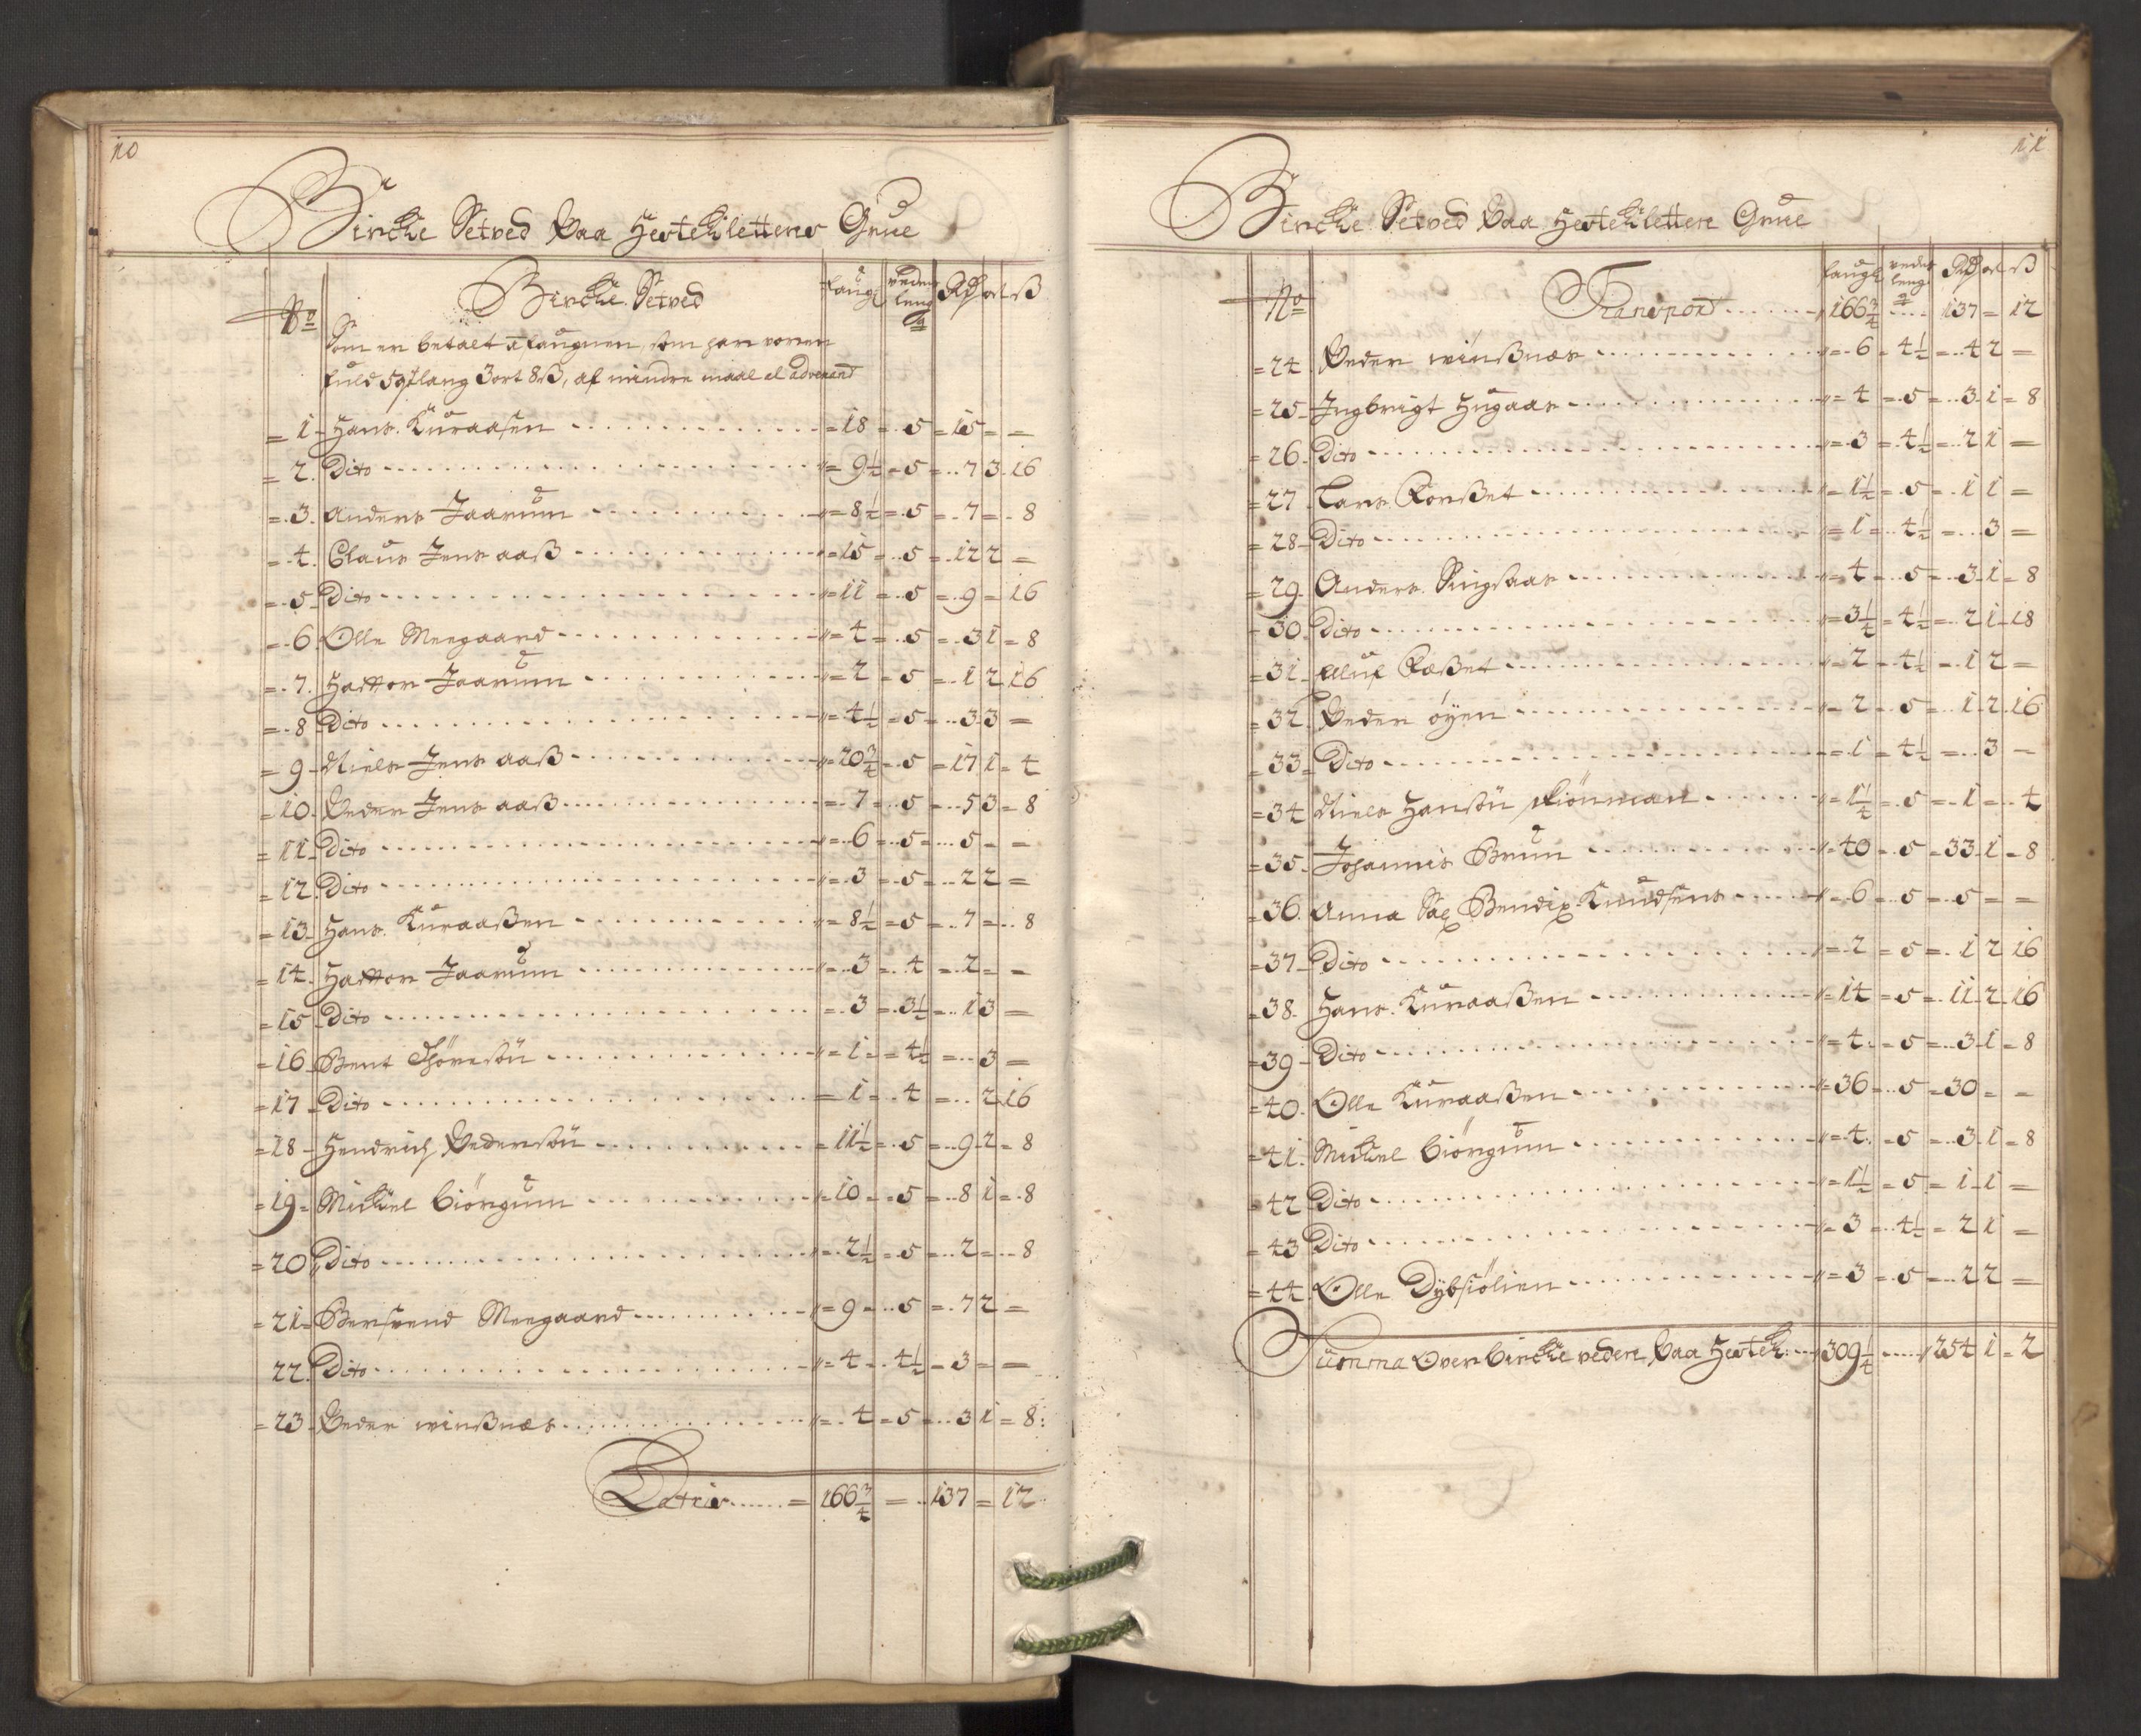 10
Bircke Setved Paa Hesteklettens Grue
No Bircke Setved faug: vedens leng q Rd ort ß
Som er betalt a faugnen, som har voren
fuld 5 q lang 3 ort 8 ß, af mindre maal al advenant
= 1 - Hans Kuraasen = 18 = 5 = 15 = =
= 2. Dito = 9½ = 5 = 7 3 16
= 3. Anders Jaarum = 8½ = 5 = 7 = 8
= 4. Claus Jens aaß = 15 = 5 = 12 2 =
= 5 Dito = 11 = 5 = 9 = 16
= 6 Olle Meegaard = 4 = 5 = 3 1 = 8
= 7. Halvor Jaarum = 2 = 5 = 1 2 16
= 8 Dito = 4½ = 5 = 3 3 =
= 9 - Niels Jens aaß = 20¾ = 5 = 17 1 = 4
= 10. Peder Jens aaß = 7 = 5 = 5 3 = 8
= 11 - Dito = 6 = 5 = 5 = =
= 12. Dito = 3 = 5 = 2 2 =
= 13 - Hans Kuraaßen = 8½ = 5 = 7 = 8
= 14. Halvor Jaarum = 3 = 4 = 2 = =
= 15 - Dito = 3 = 3½ = 1 3 =
= 16 - Bent Thöresön = 1 = 4½ = 3 =
= 17 - Dito = 1 = 4 = 2 16
= 18 - Hendrich Pedersön = 11½ = 5 = 9 2 = 8
= 19 = Mickel biörgum = 10 = 5 = 8 1 = 8
= 20 Dito = 2½ = 5 = 2 = 8
= 21 = Bersvend Meegaard = 9 = 5 = 7 2 =
22. Dito = 4 = 4½ = 3 = =
= 23 - Peder winßnæs = 4 = 5 = 3 1 = 8
Latris = 166¾ = 137 = 12
11
Bircke Setved Paa Hesteklettens Grue
No faugl vedens leng q Rd ort ß
Transport 166¾ 137 = 12
= 24. Peder winßnæs = 6 = 4½ = 4 2 =
= 25 - Ingbrigt Hugaas = 4 = 5 = 3 1 = 8
= 26. Dito = 3 = 4½ = 2 1 =
= 27. Lars Forßet = 1½ = 5 = 1 1 =
= 28 - Dito = 1 = 4½ = 3 =
= 29. Anders Singsaas = 4 = 5 = 3 1 = 8
= 30. Dito = 3¼ = 4½ = 2 1 - 18
= 31 - Oluf Foßet = 2 = 4½ = 1 2 =
= 32. Peder öyen = 2 = 5 = 1 2 16
= 33 - Dito = 1 = 4½ = 3 =
= 34 Niels Hansön = 1¼ = 5 = 1 = 4
= 35. Johannis Brun = 40 = 5 = 33 1 = 8
= 36. Anna Sal Bendix Knudsens = 6 = 5 = 5 = =
= 37 - Dito = 2 = 5 = 1 2 16
= 38. Hans Kuraaßen = 14 = 5 = 11 2 16
= 39 - Dito = 4 = 5 = 3 1 = 8
= 40. Olle Kuraaßen = 36 = 5 = 30 = =
= 41. Mickel biörgum = 4 = 5 = 3 1 = 8
= 42 Dito = 1½ = 5 = 1 1 =
= 43 Dito = 3 = 4½ = 2 1 =
= 44. Olle Dybsiölien = 3 = 5 = 2 2 =
Summa Over bircke veden Paa Hestek: 309¼ 254 1 = 2